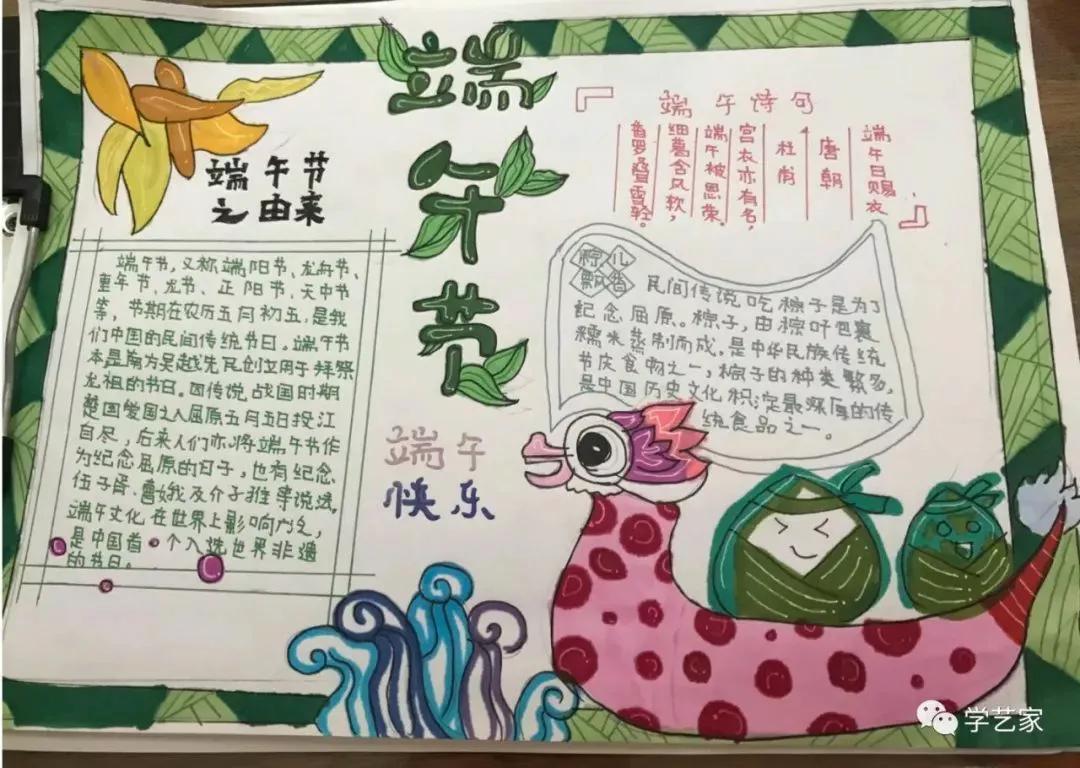 端午节
端午节
之由来
端午节，又称端阳节、龙舟节、
重午节、龙节、正阳节、天中节
等，节期在农历五月初五，是我
们中国的民间传统节日。端午节
本是南方吴越先民创立用于拜祭
龙祖的节日。因传说战国时期
楚国爱国之人屈原五月五日投江
自尽，后来人们亦将端午节作
为纪念屈原的日子，也有纪念
伍子胥、曹娥及介子推等说法。
端午文化在世界上影响广泛，
是中国首个入选世界非遗
的节日。
端午诗句
端午日赐衣
唐朝
杜甫
宫衣亦有名，
端午被恩荣。
细葛含风软，
香罗叠雪轻。
粽儿
飘香
民间传说吃粽子是为了
纪念屈原。粽子，由粽叶包裹
糯米蒸制而成。是中华民族传统
节庆食物之一，粽子的种类繁多，
是中国历史文化积淀最深厚的传
统食品之一。
端午
快乐
学艺家